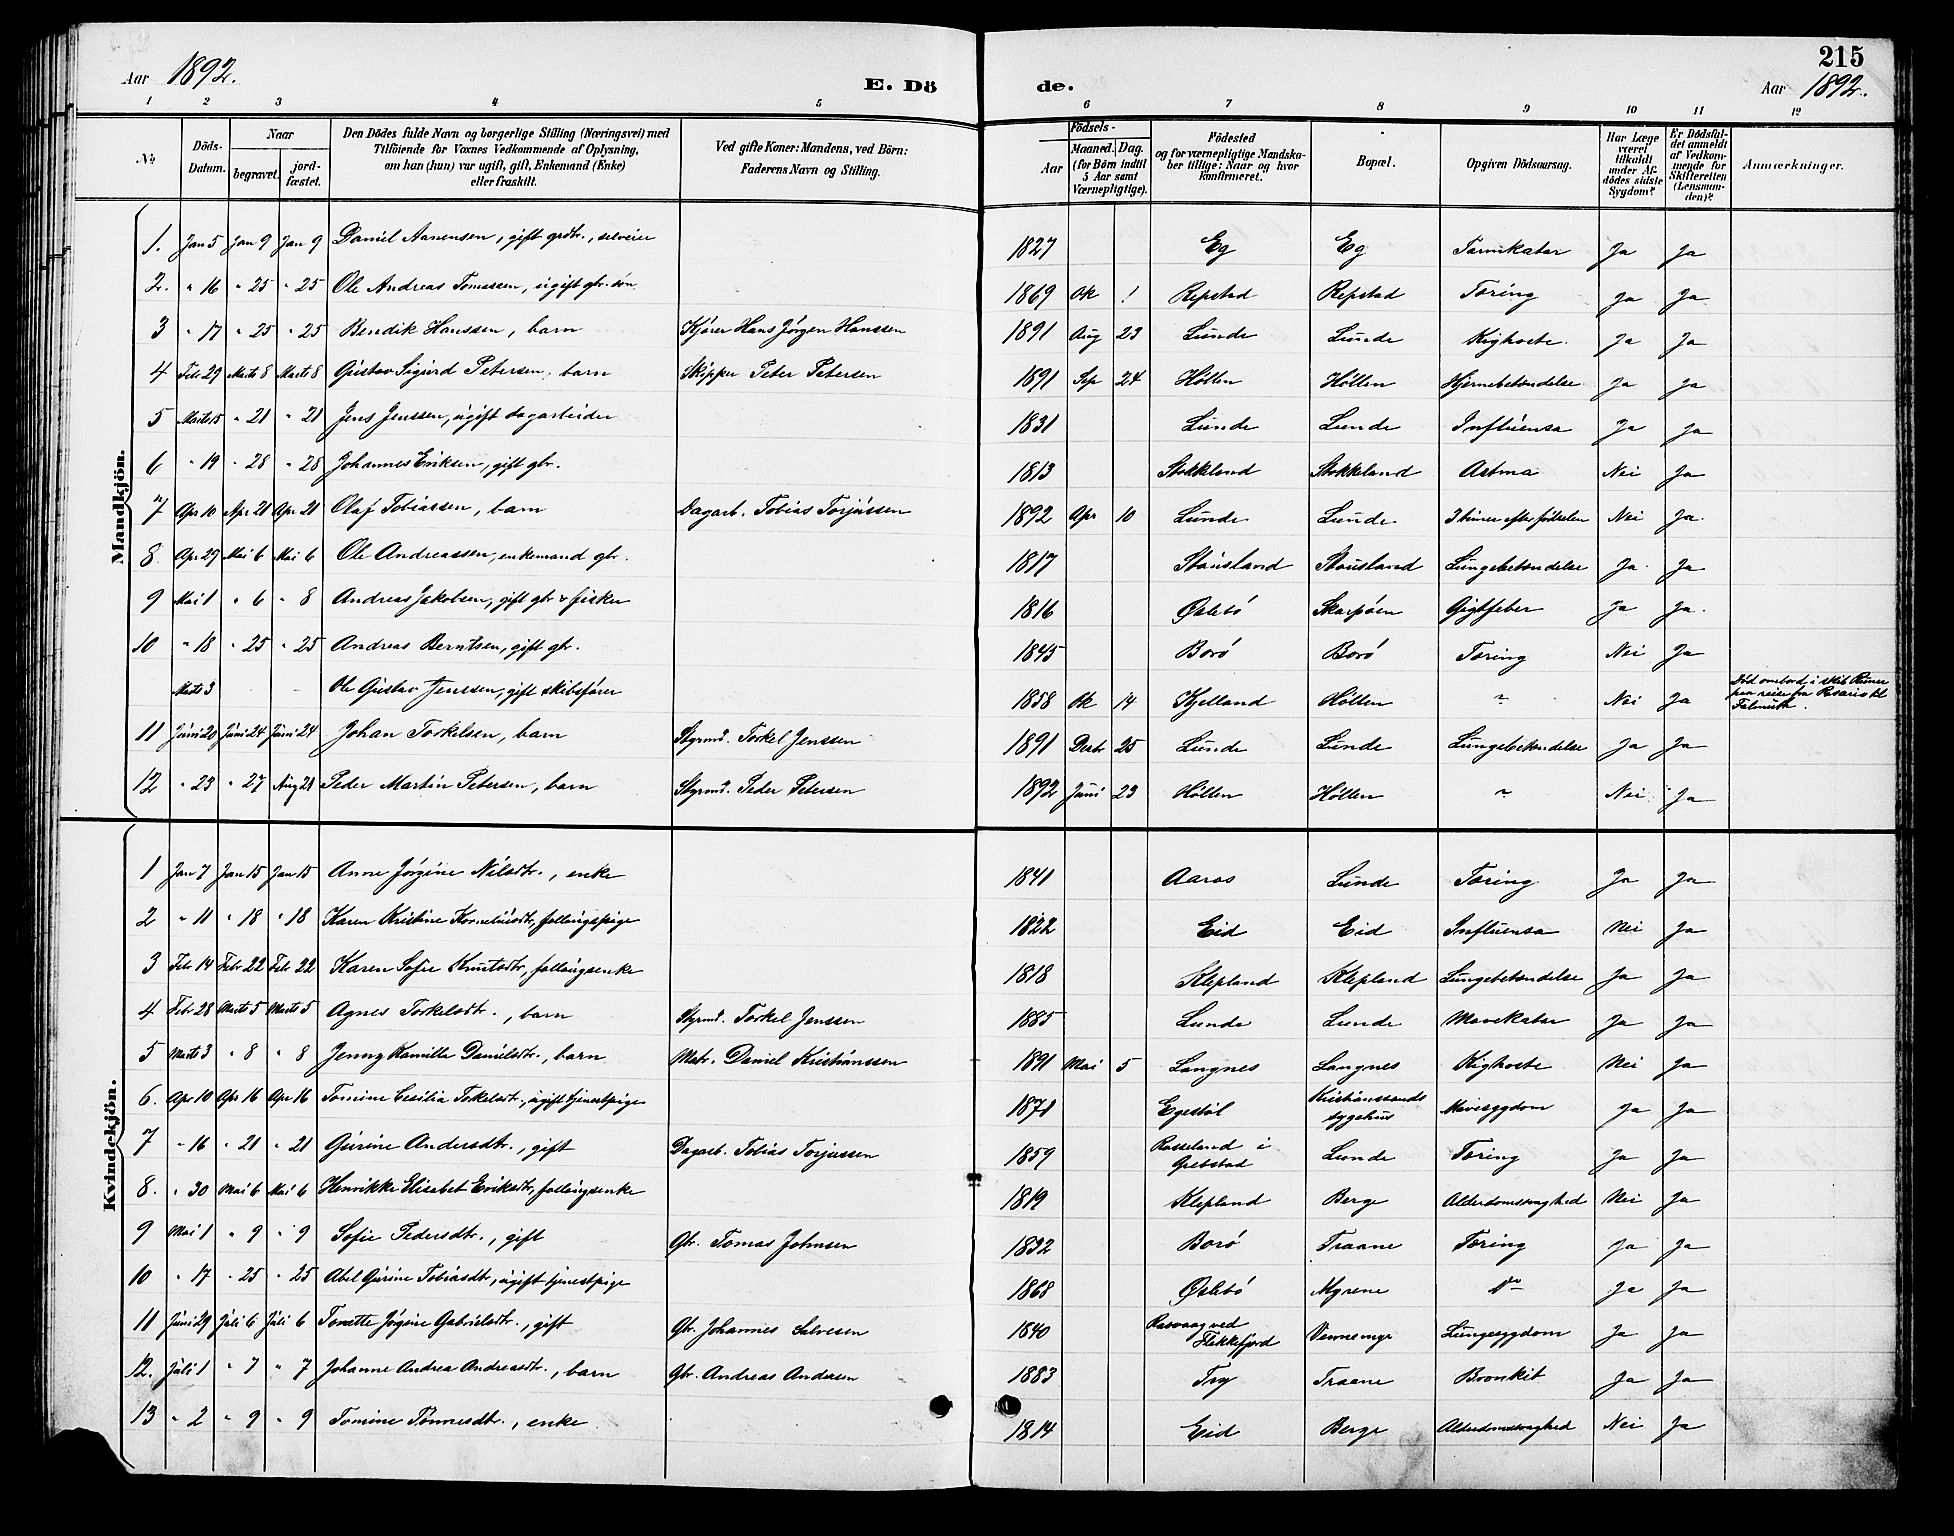 215
Aar 1892. E. Dö de. Aar 1892.
1 2 3 4 5 6 7 8 9 10 11 12
№ Döds-Datum. Naar begravet. jordfæstet. Den Dödes fulde Navn og borgerlige Stilling (Næringsvei) med Tilföiende for Voxnes Vedkommende af Oplysning, om han (hun) var ugift, gift, Enkemand (Enke) eller fraskilt. Ved gifte Koner: Mandens, ved Börn: Faderens Navn og Stilling. Födsels- Aar Maaned. Dag. (for Börn indtil 5 Aar samt Værnepligtige). Födested og for værnepligtige Mandskaber tillige: Naar og hvor konfirmeret. Bopæl. Opgiven Dödsaarsag. Har Læge været tilkaldt under Afdödes sidste Sygdom? Er Dödsfaldet anmeldt af Vedkommende for Skifteretten (Lensmanden)? Anmærkninger.
Mandkjön.
1. Jan 5 Jan 9 Jan 9 Daniel Aanensen, gift grdbr., selveier 1827 Eg Eg Tarmkatar Ja Ja
2. " 16 " 25 " 25 Ole Andreas Tomassen, ugift gbr. sön 1869 Ok 1 Repstad Repstad Tæring Ja Ja
3 " 17 " 25 " 25 Bendik Hanssen, barn Kjører Hans Jørgen Hanssen 1891 Aug 23 Lunde Lunde Kighoste. Ja Ja
4 Feb 29 Marts 8 Marts 8 Gustav Sigurd Petersen, barn Skipper Peter Petersen 1891 Sep 24 Höllen Höllen Hjernebetændelse Ja Ja
5 Marts 15 " 21 " 21 Jens Jenssen, ugift dagarbeider 1831 Lunde Lunde Influensa Ja Ja
6 " 19 " 28 " 28 Johannes Eriksen, gift gbr. 1813 Stokkland Stokkeland Astma Nei Ja
7 Apr 10 Apr 21 Apr 21 Olaf Tobiassen, barn Dagarb. Tobias Torjussen 1892 Apr 10 Lunde Lunde 3 timer efter fødselen Nei Ja.
8 Apr 29 Mai 6 Mai 6 Ole Andreassen, enkemand gbr. 1817 Stausland Stausland Lungebetændelse Ja Ja.
9 Mai 1 " 6 " 8 Andreas Jakobsen, gift gbr & fisker 1816 Øslebö Skarpöen Gigtfeber Ja Ja.
10 " 18 " 25 " 25 Andreas Berntsen, gift gbr. 1845 Borö Borö Tæring Nei Ja
Marts 3 - - Ole Gustav Jenssen, gift skibsfører 1858 Ok 14 Kjelland Höllen " Nei Ja Död ombord i skib Rimer paa reise fra Rosario til Falmuth.
11 Juni 20 Juni 24 Juni 24 Johan Torkelsen, barn Styrmd. Torkel Jenssen 1891 Decb 25 Lunde Lunde Lungebetændelse Ja Ja
12 " 23 " 27 Aug 21 Peder Martin Petersen, barn Styrmd. Peder Petersen 1892 Juni 23 Höllen Höllen " Nei Ja
Kvindekjön.
1 Jan 7 Jan 15 Jan 15 Anne Jørgine Nilsdtr., enke 1841 Aaros Lunde Tæring Ja Ja
2 " 11 " 18 " 18 Karen Kristine Korneliusdtr, fattigspige 1822 Eid Eid Influensa Nei Ja
3 Febr 14 Febr 22 Febr 22 Karen Sofie Knutsdtr, fattigsenke 1818 Klepland Klepland Lungebetændelse Ja Ja
4 Febr 28 Marts 5 Marts 5 Agnes Torkelsdtr., barn Styrmd. Torkel Jenssen 1885 Lunde Lunde Mavekatar Ja Ja
5 Marts 3 " 8 " 8 Jenny Kamilla Danielsdtr., barn Matr. Daniel Kristianssen 1891 Mai 5 Langnes Langnes Kighoste Nei Ja
6. Apr 10 Apr 16 Apr 16 Tomine Cecilia Torkelsdtr., ugift tjenestpige 1871 Egestöl Kristianssands sygehus Mavesygdom Ja Ja
7 " 16 " 21 " 21 Gurine Andersdtr., gift Dagarb. Tobias Torjussen 1859 Rosseland i Grebstad Lunde Tæring Ja Ja
8. " 30 Mai 6 Mai 6 Henrikke Elisabet Eriksdtr, fattigsenke 1819 Klepland Berge Alderdomssvaghed Nei Ja
9 Mai 1 " 9 " 9 Sofie Pedersdtr., gift Gbr. Tomas Johnsen 1832 Borö Traane Tæring Ja Ja
10 " 17 " 25 " 25 Abel Gurine Tobiasdtr, ugift tjenestpige 1868 Øslebö Myrene do Ja Ja
11 Juni 29 Juli 6 Juli 6 Tonette Jørgine Gabrielsdtr., gift Gbr. Johannes Salvesen 1840 Rasvaag ved Flekkefjord Vennemyr Lungesygdom Ja Ja
12. Juli 1 " 7 " 7 Johanne Andrea Andreasdtr., barn Gbr. Andreas Andersen 1883 Try Traane Bronkit Ja Ja
13 " 2 " 9 " 9 Tomine Tønnesdtr., enke 1814 Eid Berge Alderdomssvaghed Nei Ja